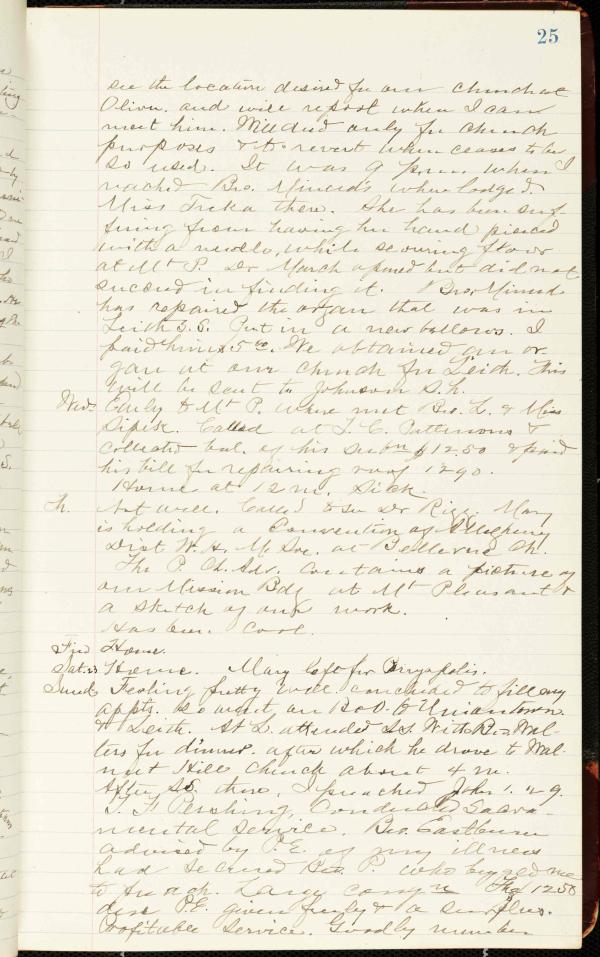 25
see the location desired for our church at
Oliver. and will report when I can
meet him. Will deed only for church
purposes & to revert when ceases to be
so used. It was 9 p.m. when I
reached Bro. Minerds where lodged.
Miss Ticka there. She has been suf-
fering from having her hand pierced
with a needle, while scouring floor
at Mt P. Dr March opened but did not
succeed in finding it. Bro. Minerd
has repaired the organ that was in
Leith S.S. Put in a new bellows. I
paid him $5.00. We obtained an or-
gan at our church for Leith. This
will be sent to Johnson S.h.
Wed. Early to Mt P. where met Bro. L. & Miss
Sipe. Called at J. C. Pattersons &
collected bal. of his subn $12.50 & paid
his bill for repairing roof 12 90.
Home at 12 m. Sick.
Th. Not well. Called to see Dr Rigg. Mary
is holding a Convention of Allegheny
Dist W. H. M. Soc. at Bellevue Ch.
The P. Ch. Adv. contains a picture of
our Mission Bdg at Mt Pleasant &
a sketch of our work.
Has been cool.
Fri Home.
Sat. Home. Mary left for Perryopolis.
Sund. Feeling pretty well concluded to fill my
appts. So went on B&O. to Uniontown
& Leith. At L. attended S.S. With Bro Wal-
ters for dinner. after which he drove to Wal-
nut Hill Church about 4 m.
After SS there, I preached John 1. 29.
T. F. Pershing, conducted Sacra-
mental service. Bro. Eastburn
advised by P.E. of my illness
had secured Bro. P. who begged me
to preach. Large congn The 12 50
due P.E. given freely & a surplus.
Profitable service. Goodly number